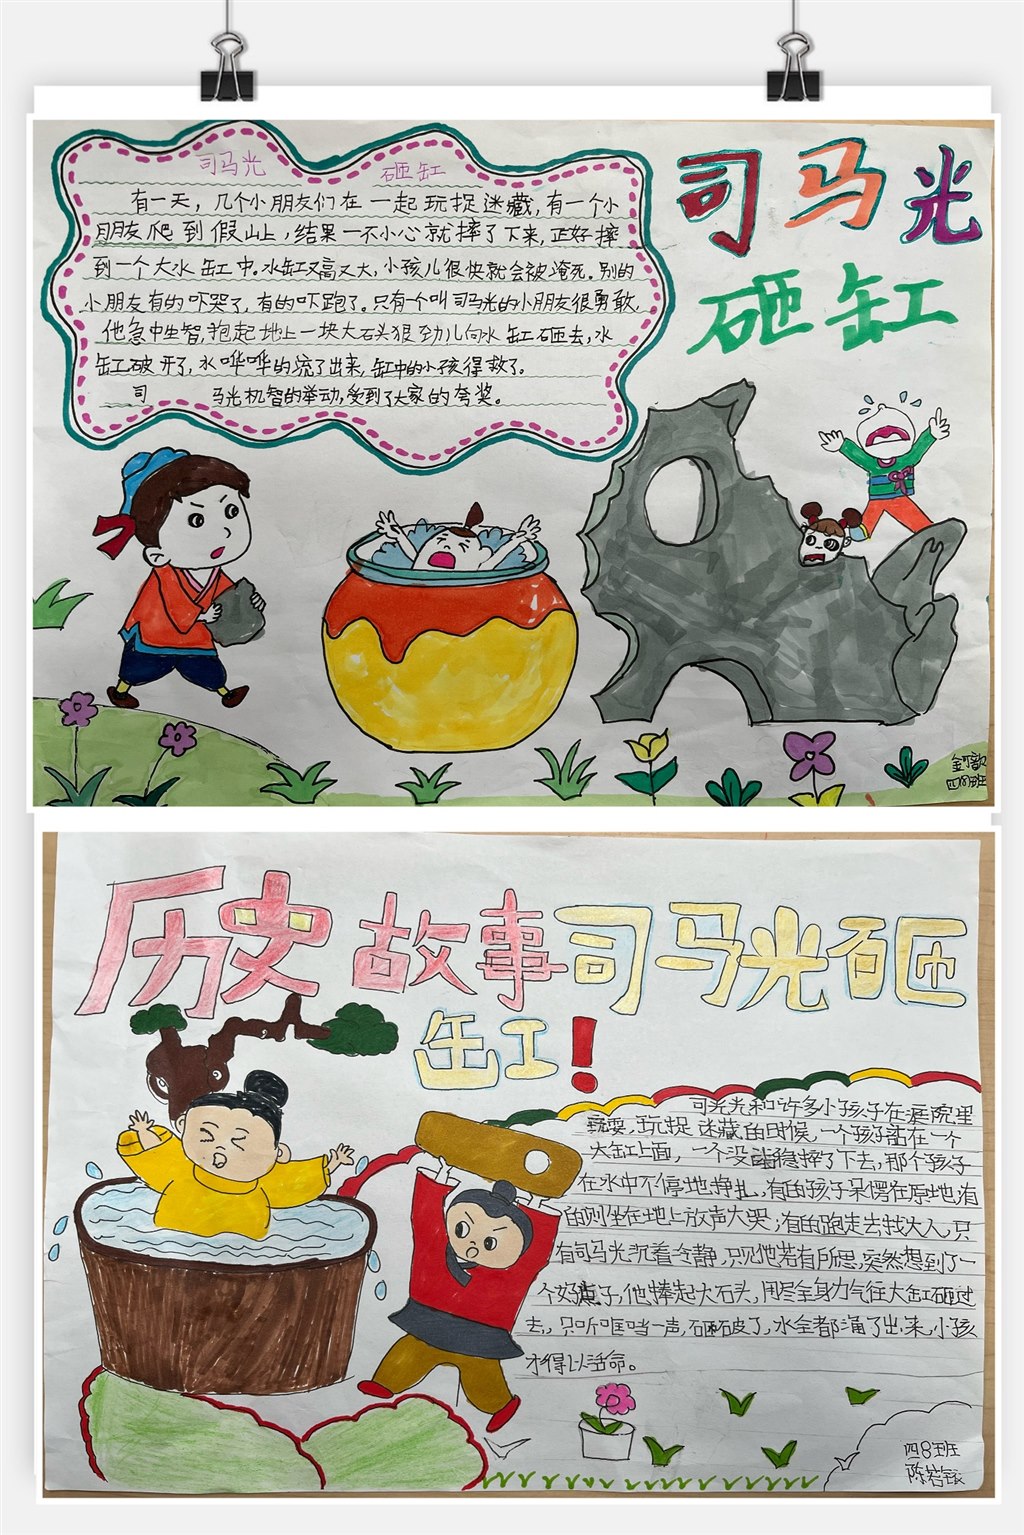 司马光 砸缸
有一天，几个小朋友们在一起玩捉迷藏，有一个小
朋友爬到假山上，结果一不小心就摔了下来，正好摔
到一个大水缸中。水缸又高又大，小孩儿很快就会被淹死。别的
小朋友有的吓哭了，有的吓跑了。只有一个叫司马光的小朋友很勇敢，
他急中生智，抱起地上一块大石头狠劲儿向水缸砸去，水
缸破开了，水哗哗的流了出来，缸中的小孩得救了。
司马光机智的举动，受到了大家的夸奖。
司马光
砸缸
四8班
历史故事司马光砸
缸！
司光光和许多小孩子在庭院里
玩耍，玩捉迷藏的时候，一个孩子站在一个
大缸上面，一个没踏稳摔了下去，那个孩子
在水中不停地挣扎，有的孩子呆愣在原地，有
的则坐在地上放声大哭；有的跑走去找大人，只
有司马光沉着冷静，只见他若有所思，突然想到了一
个好点子，他捧起大石头，用尽全身力气往大缸砸过
去，只听哐当一声，砸破了，水全都涌了出来，小孩
才得以活命。
四8班
陈若